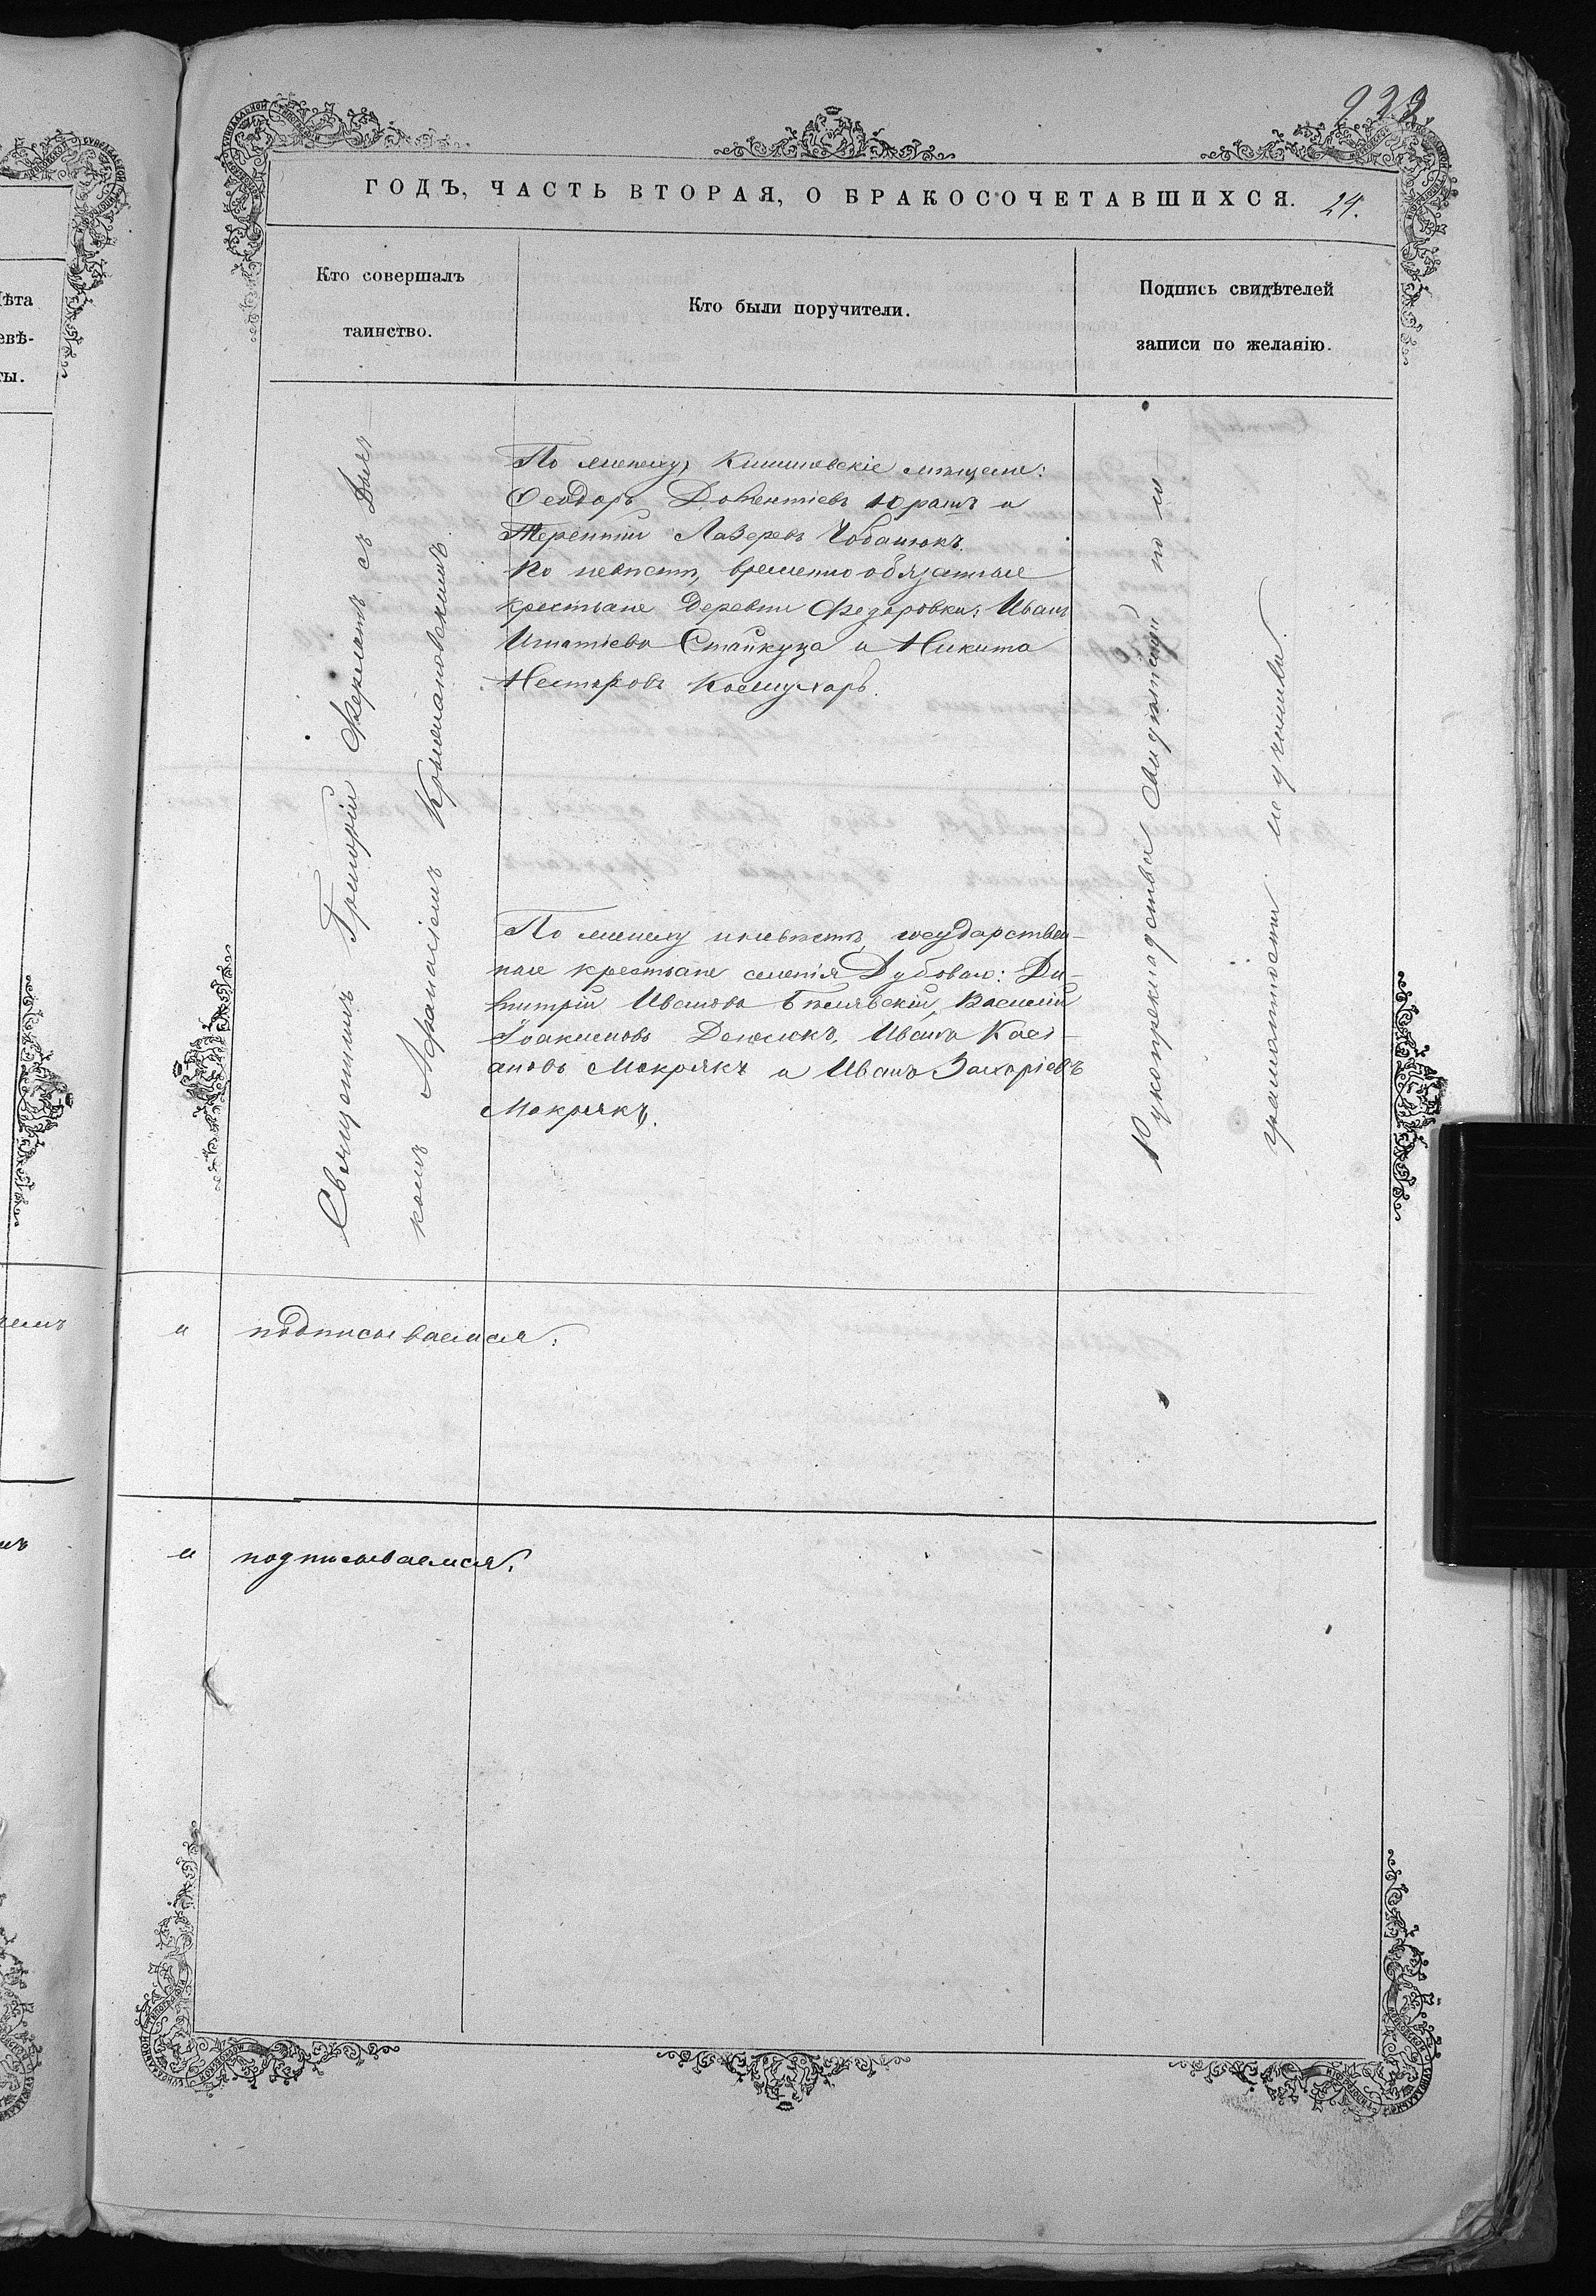 922.
ГОДЪ, ЧАСТЬ ВТОРАЯ, О БРАКОСОЧЕТАВШИХСЯ. 24.
Кто совершалъ
таинство.
Кто были поручители.
Подпись свидѣтелей
записи по желанію.
лѣта
евѣ-
ты.
Священникъ Григорій Фержатъ съ Дьяч
комъ Афанасіемъ Крыжановскимъ.
По жениху, Кишиневскіе мѣщане:
Ѳеодоръ Юрашъ и
Терентій Лазеревъ Чобанюкъ.
По невѣстѣ, временно обязанные
крестьяне деревни Федоровки: Иванъ
Игнатіевъ Стайкуза и Никита
Нестеровъ Коемухарь.
По жениху и невѣстѣ, государствен-
ные крестьяне селенія Дубоваго: Ди-
митрій Ивановъ Бѣлявскій, Василій
Іоакимовъ Иванъ Касі-
ановъ Мокрякъ и Иванъ Захаріевъ
Мокрякъ.
Рукоприкладства свидѣтелей по не
грамотности не учинили.
и подписываемся:
и подписываемся.